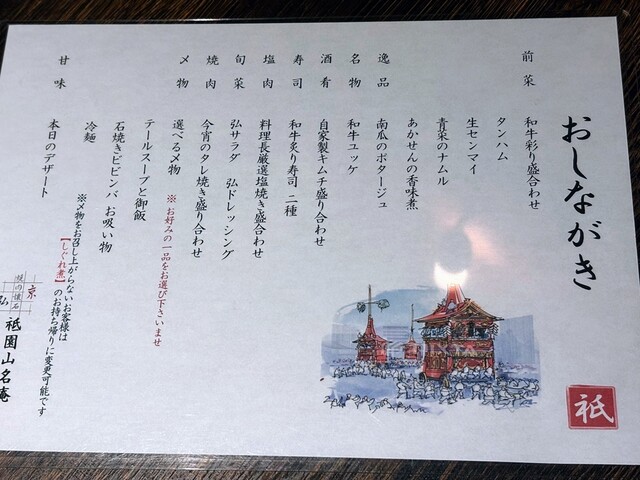 おしながき
前菜 和牛彩り盛合わせ
タンハム
生センマイ
青菜のナムル
あかせんの香味煮
逸品 南瓜のポタージュ
名物 和牛ユッケ
酒肴 自家製キムチ盛り合わせ
寿司 和牛炙り寿司 二種
塩肉 料理長厳選塩焼き盛合わせ
旬菜 弘サラダ 弘ドレッシング
焼肉 今宵のタレ焼き盛り合わせ
〆物 選べる〆物 ※お好みの一品をお選び下さいませ
テールスープと御飯
石焼きビビンバ お吸い物
冷麺
※〆物をお召し上がらないお客様は
【しぐれ煮】のお持ち帰りに変更可能です
甘味 本日のデザート
京
焼の懐石
弘
祇園山名庵
祇